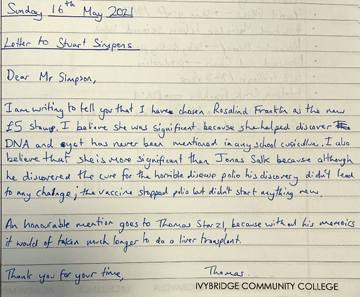 Sunday 16th May 2021
Letter to Stuart Simpsons
Dear Mr Simpson,
I am writing to tell you that I have chosen Rosalind Franklin as the new
£5 stamp. I believe she was significant because she helped discover
DNA and yet has never been mentioned in any school curriculum. I also
believe that she is more significant than Jonas Salk because although
he discovered the cure for the horrible disease polio his discovery didn't lead
to any change; the vaccine stopped polio but didn't start anything new.
An honourable mention goes to Thomas Starzl, because without his memoirs
it would of taken much longer to do a liver transplant.
Thank you for your time, Thomas.
IVYBRIDGE COMMUNITY COLLEGE